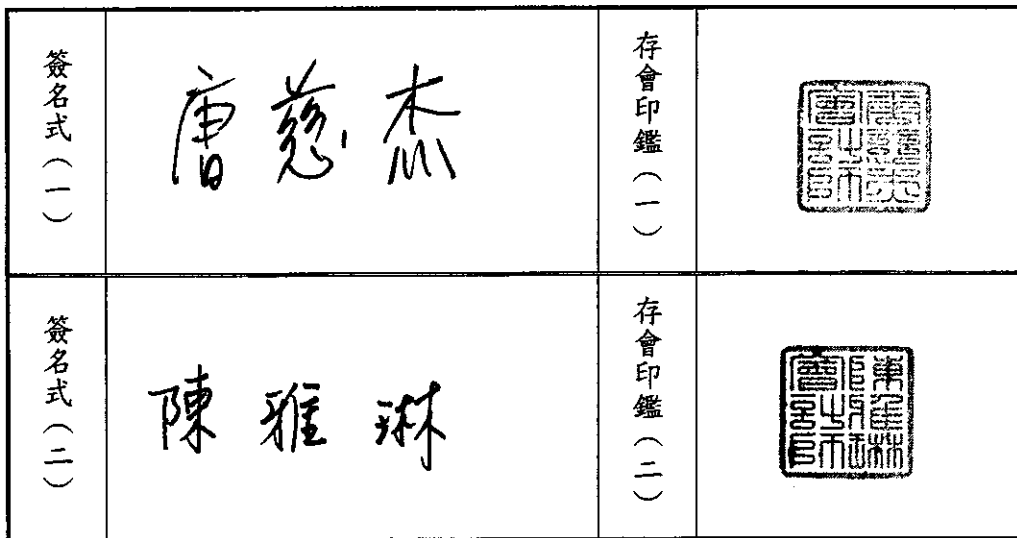 簽名式（一）
唐慈杰
存會印鑑（一）
簽名式（二）
陳雅琳
存會印鑑（二）
陳雅琳會計師